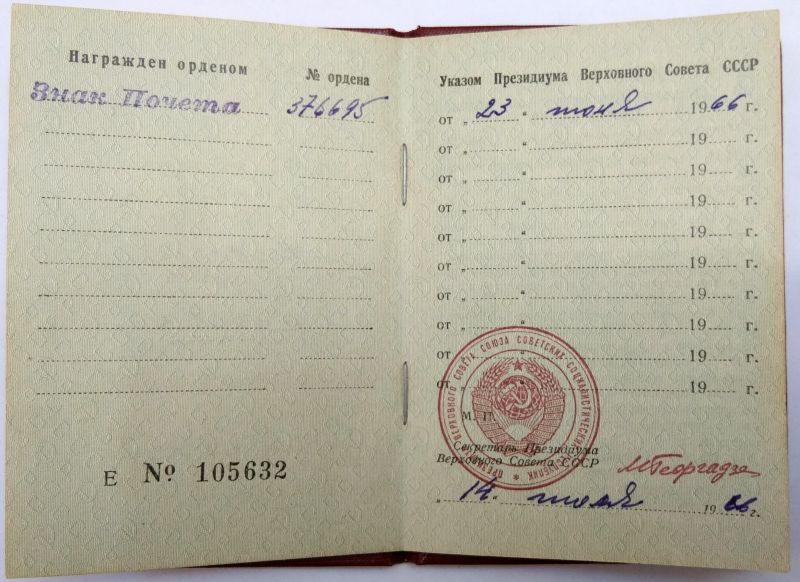 Награжден орденом
№ ордена
Знак Почета
376695
Е № 105632
Указом Президиума Верховного Совета СССР
от „ 23 “ июня 1966 г.
от „ “ 19 г.
от „ “ 19 г.
от „ “ 19 г.
от „ “ 19 г.
от „ “ 19 г.
от „ “ 19 г.
от „ “ 19 г.
от „ “ 19 г.
от „ “ 19 г.
М. П.
Секретарь Президиума
Верховного Совета СССР
МГеоргадзе
„ 14 “ июля 1966 г.
ВЕРХОВНОГО СОВЕТА СОЮЗА СОВЕТСКИХ СОЦИАЛИСТИЧЕСКИХ